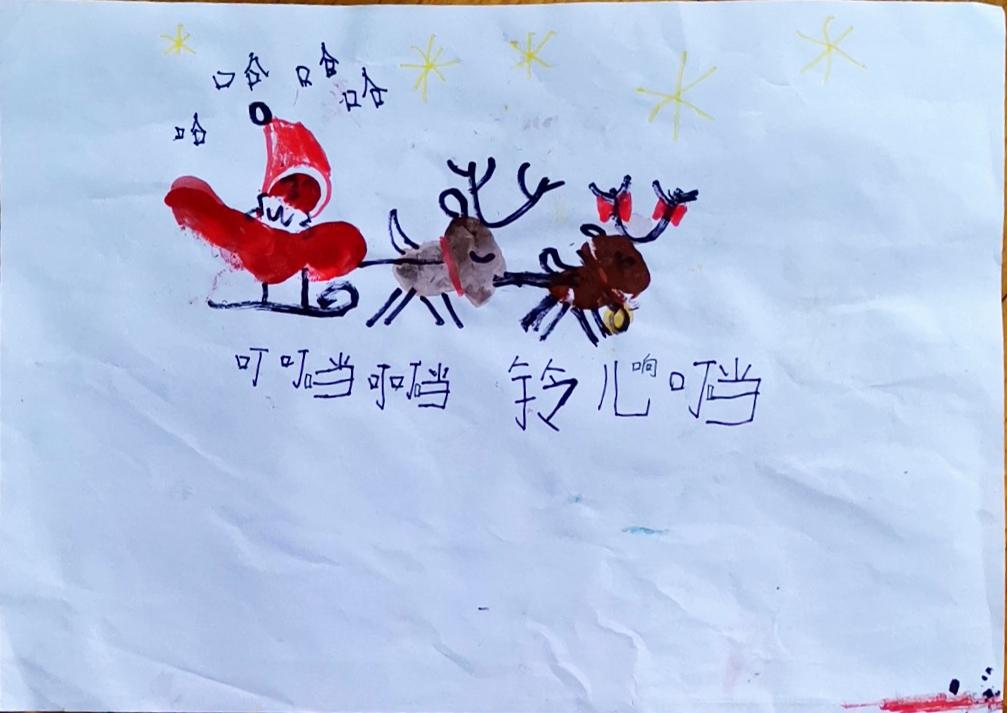 哈哈哈
哈
叮叮当叮当 铃儿响叮当